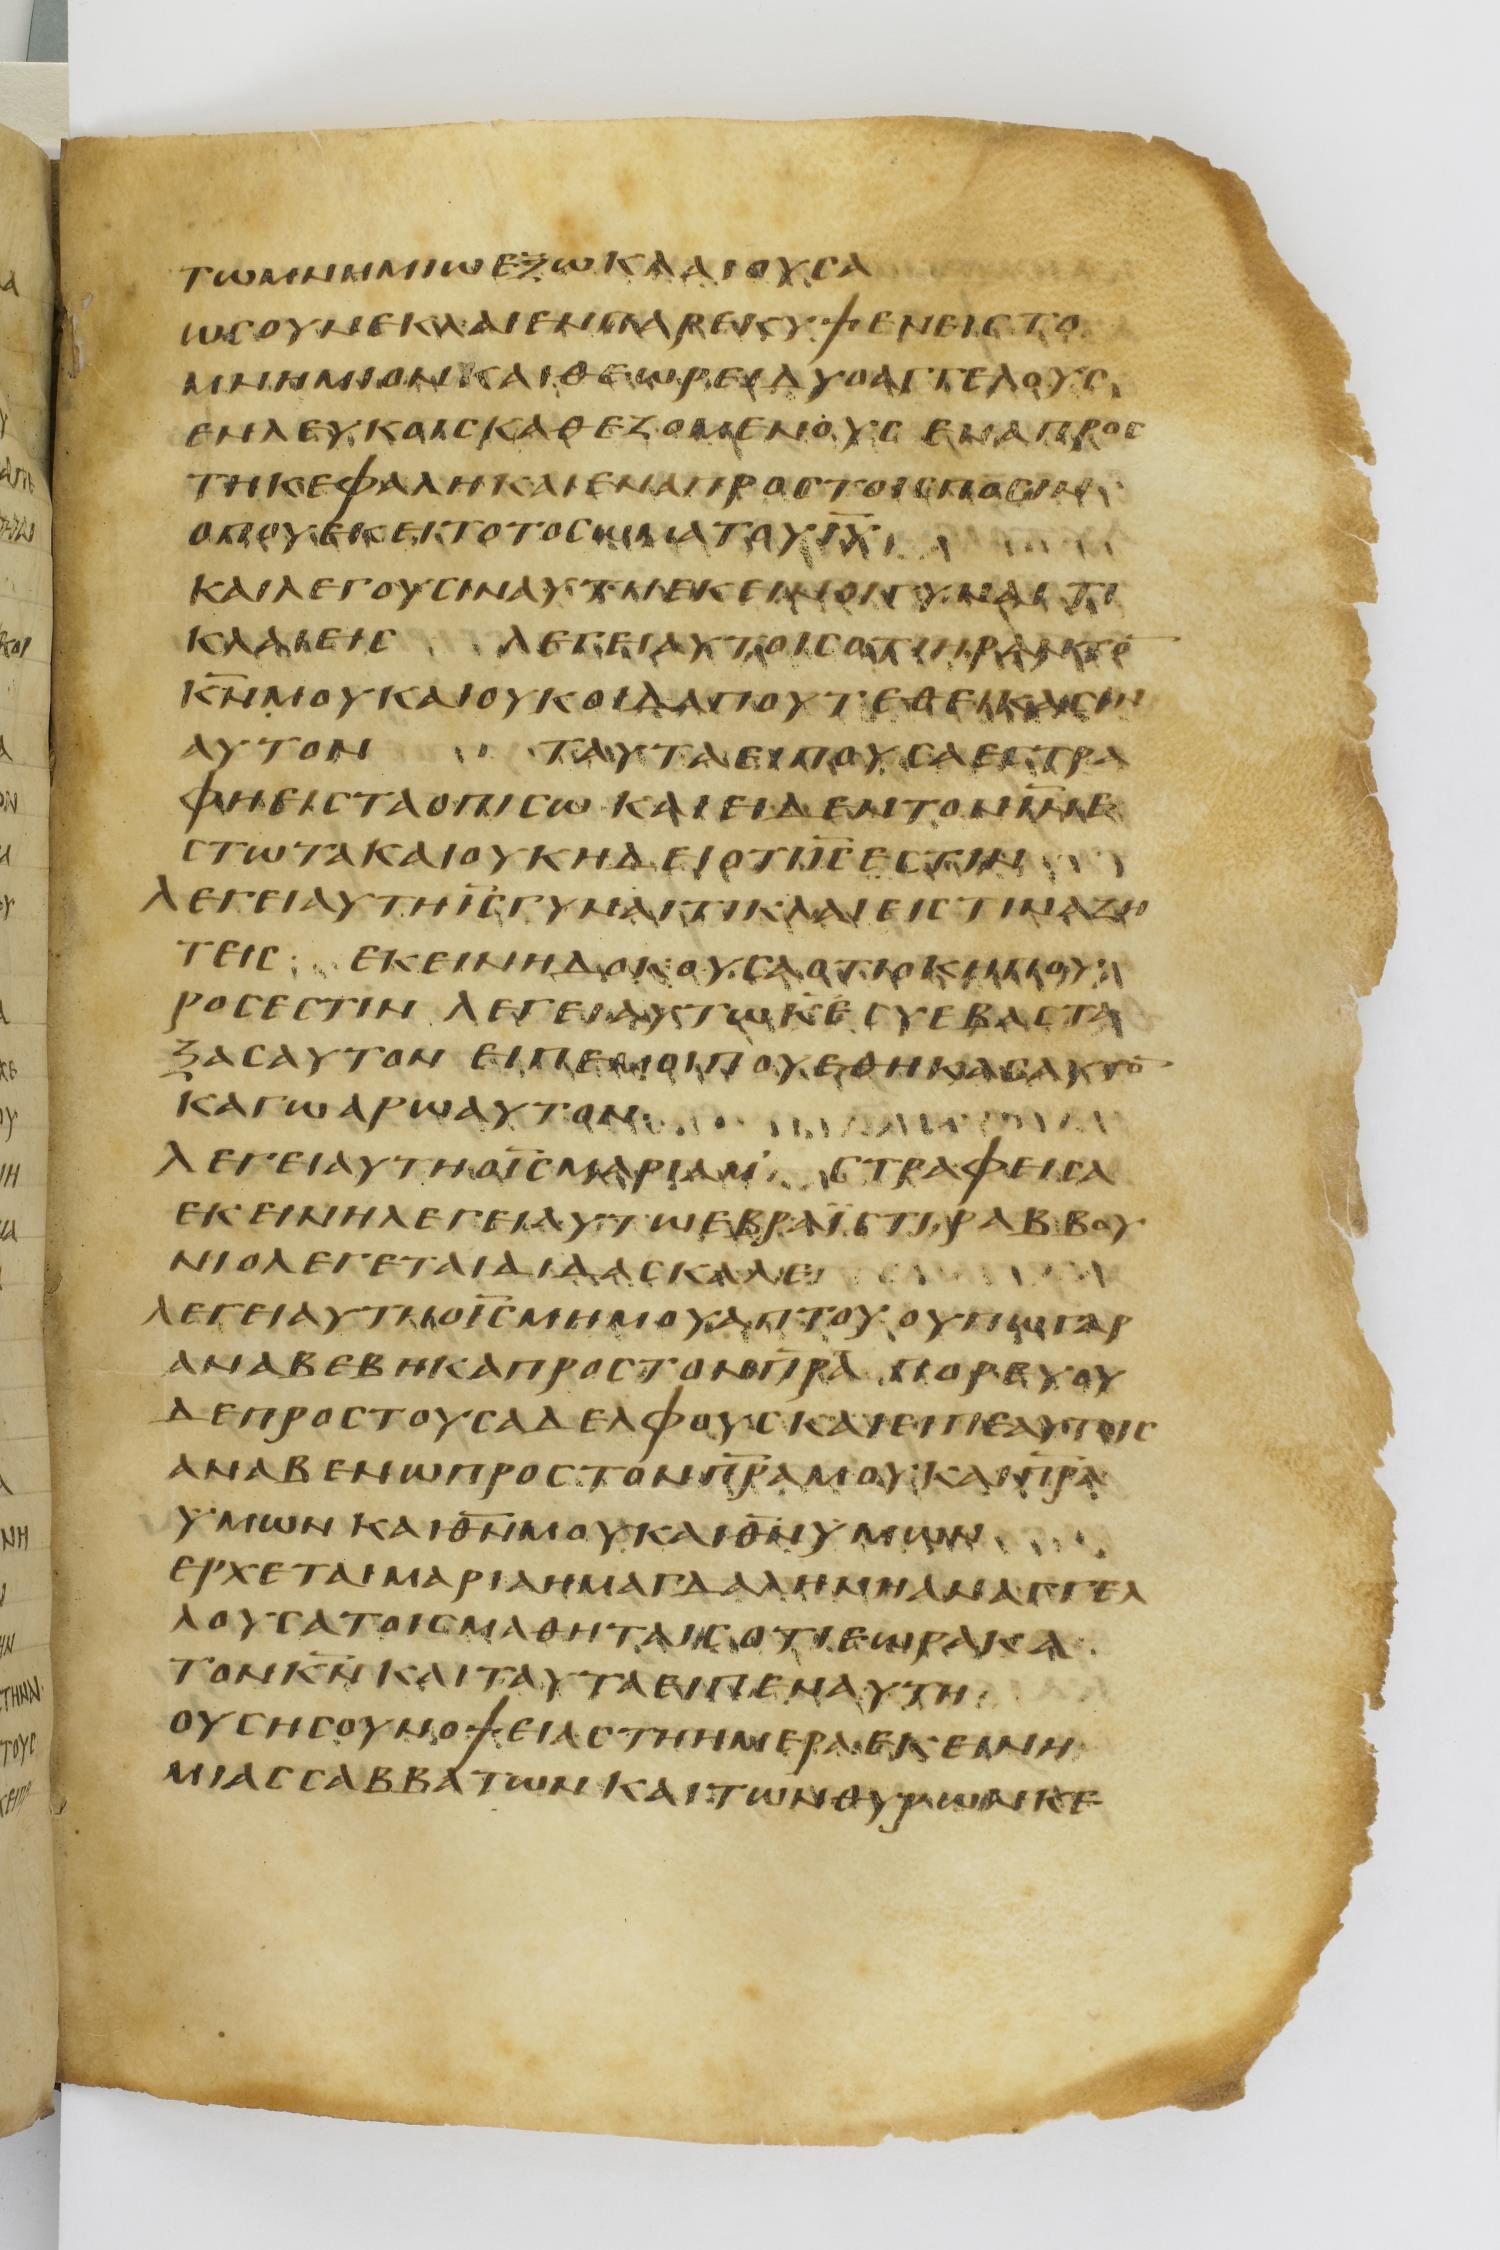 τωμνημιωεξωκλαιουσα
ωσουνεκλαιενπαρεκυψενειστο
μνημιονκαιθεωρειδυοαγγελουσ
ενλευκοισκαθεζομενουσεναπροσ
τηκεφαληκαιεναπροστοισποσιν
οπουεκειτοτοσωματουιυ
καιλεγουσιναυτηεκεινοιγυναιτι
κλαιεισ λεγειαυτοισοτιηραντο̅
κ̅ν̅μουκαιουκοιδαπουτεθεικασιν
αυτον ταυταειπουσαεστρα
φηεισταοπισωκαιειδεντονι̅ν̅ε
στωτακαιουκηδειοτιι̅σ̅εστιν
λεγειαυτηι̅σ̅γυναιτικλαιειστιναζη
τεισ εκεινηδοκουσαοτιοκηπου
ροσεστιν λεγειαυτωκ̅ε̅συεβαστα
ξασαυτον ειπεμοιπουεθηκασαυτο̅
καγωαρωαυτον
λεγειαυτηοι̅σ̅μαριαμ’ στραφεισα
εκεινηλεγειαυτωεβραϊστιραββου
νιολεγεταιδιδασκαλε
λεγειαυτηοι̅σ̅μημουαπτουουπωγαρ
αναβεβηκαπροστονπ̅ρ̅α̅ πορευου
δεπροστουσαδελφουσκαιειπεαυτοισ
αναβενωπροστονπ̅ρ̅α̅μουκαιπ̅ρ̅α̅
υμωνκαιθ̅ν̅μουκαιθ̅ν̅υμων
ερ’χεταιμαριαημαγδαληνηαναγγελ
λουσατοισμαθηταισοτιεωρακα
τονκ̅ν̅καιταυταειπεναυτη
ουσησουνοψειαστηημεραεκεινη
μιασσαββατωνκαιτωνθυρωνκε